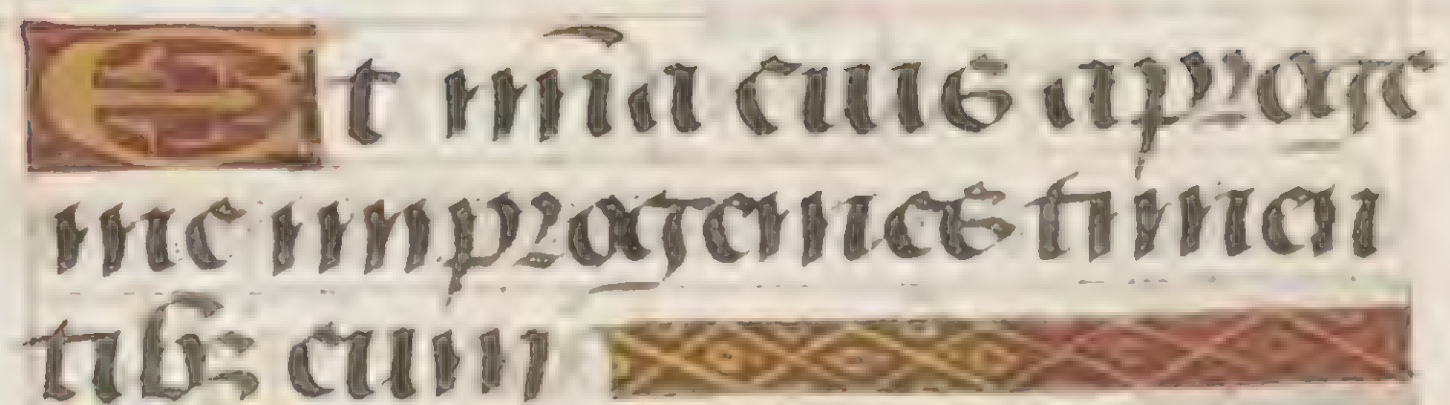 Et mīa eius a proge
nie in progenies timen
tibꝫ eum